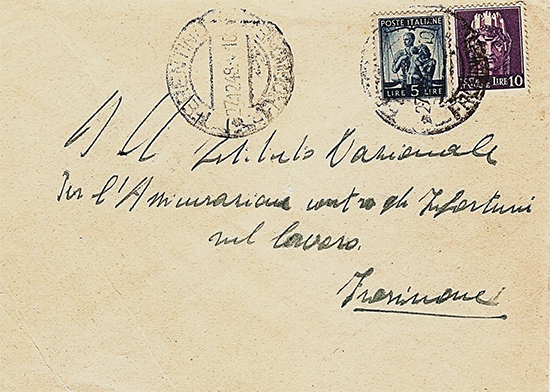 POSTE ITALIANE
LIRE 5 LIRE
LIRE 10
FERENTINO
27.12.48
All' Istituto Nazionale
Per l'Assicurazione contro gli Infortuni
sul lavoro.
Frosinone